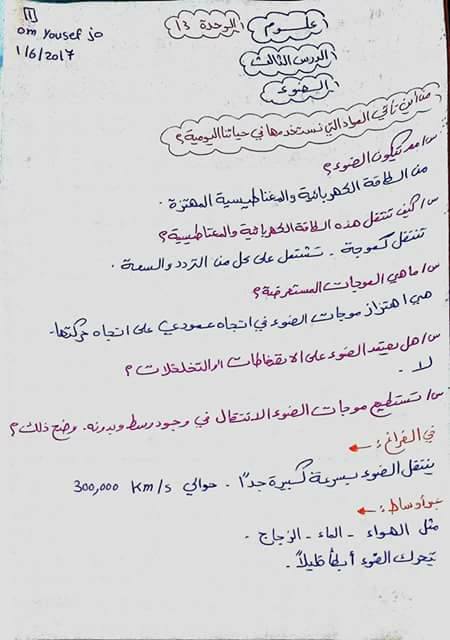 1
om Yousef jo
1/6/2017
علوم
الوحدة 13
الدرس الثالث
الضوء
من أين تأتي المواد التي نستخدمها في حياتنا اليومية؟
س/ مم يتكون الضوء؟
من الطاقة الكهربائية والمغناطيسية المهتزة.
س/ كيف تنتقل هذه الطاقة الكهربائية والمغناطيسية؟
تنتقل كموجة - تشتمل على كل من التردد والسعة.
س/ ما هي الموجات المستعرضة؟
هي اهتزاز موجات الضوء في اتجاه عمودي على اتجاه حركتها.
س/ هل يعتمد الضوء على الانضغاطات والتخلخلات؟
لا.
س/ تستطيع موجات الضوء الانتقال في وجود وسط وبدونه. وضح ذلك؟
في الفراغ:
ينتقل الضوء بسرعة كبيرة جدًا. حوالي 300,000 km/s
عبر أوساط:
مثل الهواء - الماء - الزجاج.
يتحرك الضوء أبطأ قليلاً.